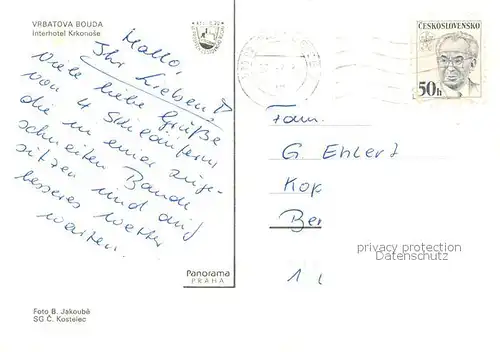 VRBATOVA BOUDA
Interhotel Krkonoše
Hallo,
Ihr Lieben!
Viele liebe Grüße
von 4 Skiläufern
die in einer zuge-
schneiten Baude
sitzen und auf
besseres Wetter
warten.
Panorama
PRAHA
Foto B. Jakoubě
SG Č. Kostelec
ČESKOSLOVENSKO
50h
Fam.
G. Ehlert
Kop
Ber
1
privacy protection
Datenschutz